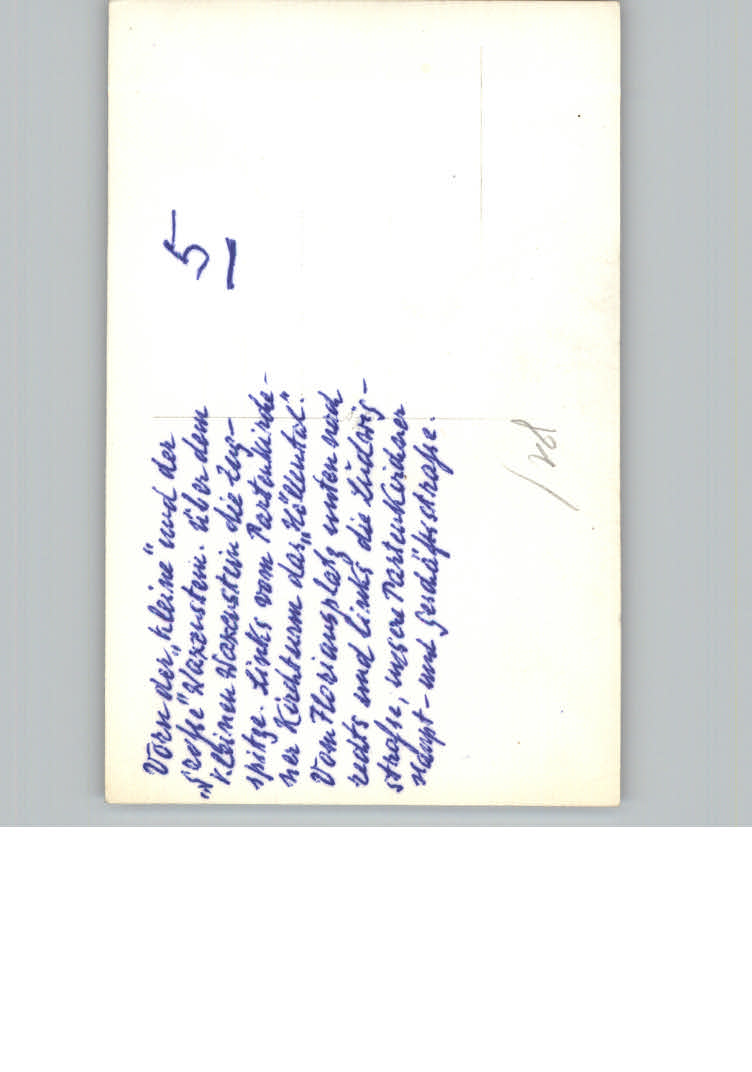 Vorn der „kleine" und der
„große" Waxenstein. Über dem
kleinen Waxenstein die Zug-
spitze. Links vom Partenkirche-
ner Kirchturm das „Höllental".
Vom Floriansplatz unten nach
rechts und links die Ludwig-
straße, unsere Partenkirchener
Haupt- und Geschäftsstraße.
5